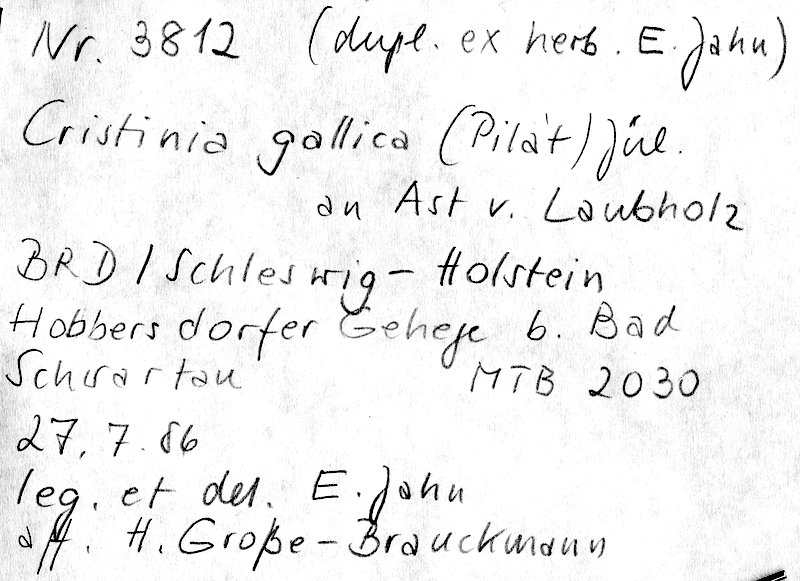 Nr. 3812 (dupl. ex herb. E. Jahn)
Cristinia gallica (Pilát) Jül.
an Ast v. Laubholz
BRD / Schleswig-Holstein
Hobbersdorfer Gehege b. Bad
Schwartau MTB 2030
27.7.86
leg. et det. E. Jahn
aff. H. Große-Brauckmann